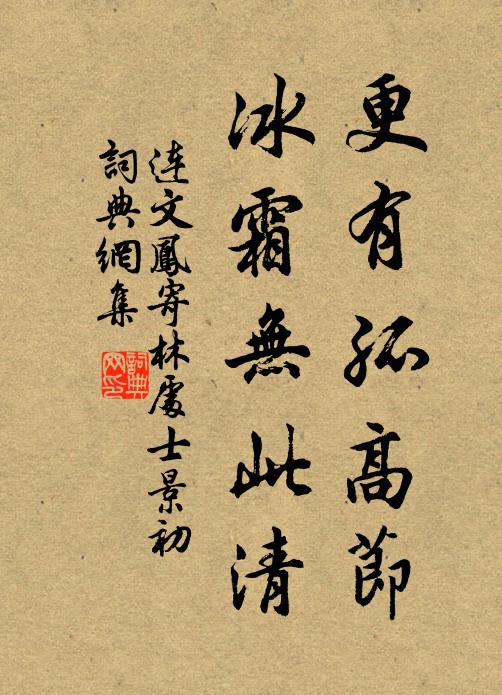 更有孤高節
冰霜無此清
連文鳳寄林處士景初
詞典網集
詞典网印